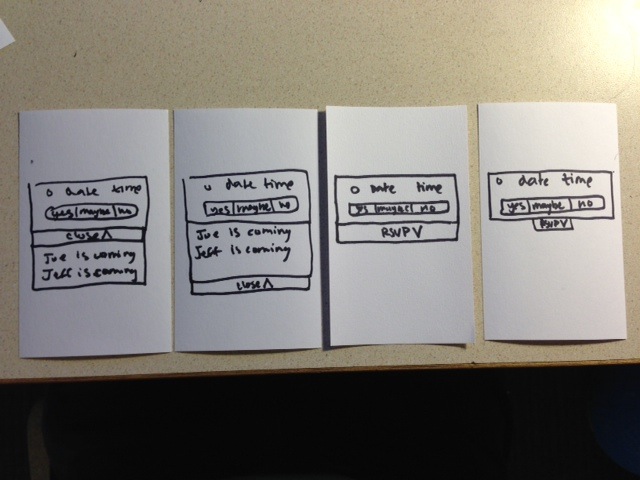 o date time
yes maybe no
close ^
Joe is coming
Jeff is coming
o date time
yes maybe no
Joe is coming
Jeff is coming
close ^
o date time
yes maybe no
RSVPV
o date time
yes maybe no
RSVPV